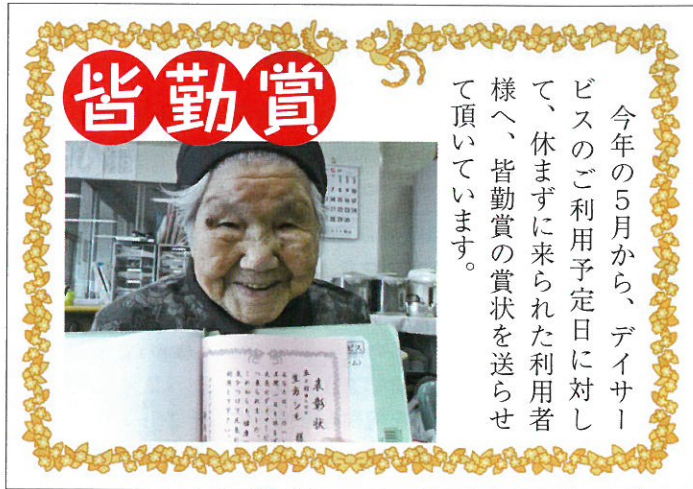 皆勤賞
今年の5月から、デイサー
ビスのご利用予定日に対し
て、休まずに来られた利用者
様へ、皆勤賞の賞状を送らせ
て頂いています。
表彰状